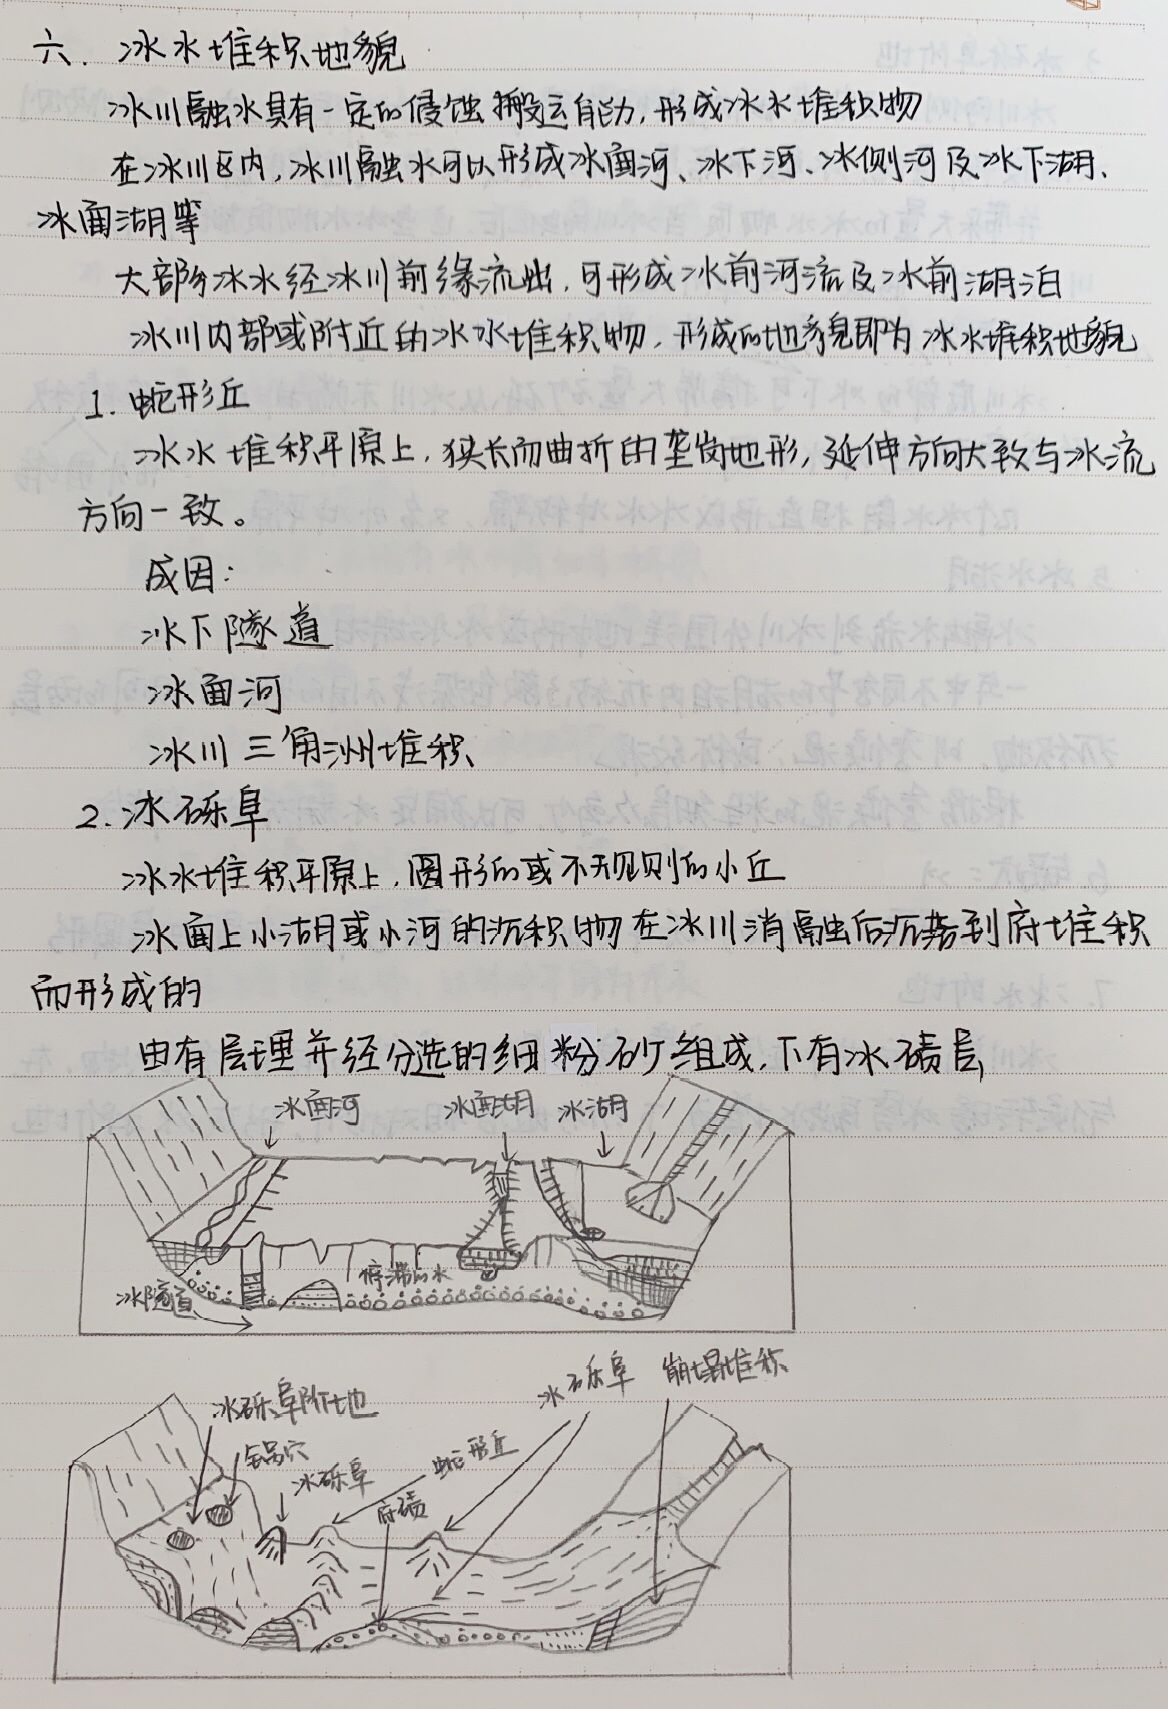 六、冰水堆积地貌
冰川融水具有一定的侵蚀搬运能力,形成冰水堆积物
在冰川区内,冰川融水可以形成冰面河、冰下河、冰侧河及冰下湖、
冰面湖等
大部分冰水经冰川前缘流出,可形成冰前河流及冰前湖泊
冰川内部或附近的冰水堆积物,形成的地貌即为冰水堆积地貌
1. 蛇形丘
冰水堆积平原上,狭长而曲折的垄岗地形,延伸方向大致与冰流
方向一致。
成因:
冰下隧道
冰面河
冰川三角洲堆积
2. 冰砾阜
冰水堆积平原上,圆形的或不规则的小丘
冰面上小湖或小河的沉积物在冰川消融后沉落到底堆积
而形成的
由有层理并经分选的细粉砂组成,下有冰碛层
冰面河 冰面湖 冰湖
停滞的水
冰隧道
冰砾阜 崩塌堆积
冰砾阜阶地
锅穴 蛇形丘
冰砾阜
底碛